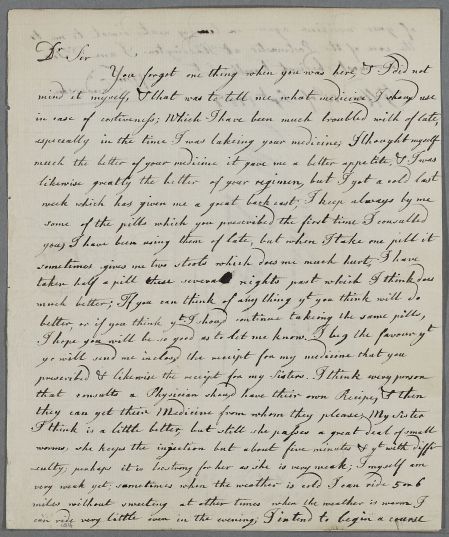 Dr Sir
You forgot one thing when you was here, & I did not
mind it myself, & that was to tell me what medicine I shoud use
in case of costiveness; Which I have been much troubled with of late,
especeally in the time I was takeing your medicine; I thought myself
much the better of your medicine it gave me a better appetite, & I was
likewise greatly the better of your regimen, but I got a cold last
week which has given me a great back cast; I keep always by me
some of the pills which you prescribed the first time I consulted
you; I have been using them of late, but when I take one pill it
sometimes gives me two stools which does me much hurt, I have
taken half a pill these several nights past which I think does
much better; If you can think of any thing yt you think will do
better or if you think yt I shoud continue takeing the same pills,
I hope you will be so good as to let me know. I beg the favour yt
yo will send me inclosd the receipt for my medicine that you
prescribed & likewise the receipt for my Sisters. I think every person
that consults a Physician shoud have their own Recipe, & then
they can get their Medicine from whom they please; My Sister
I think is a little better, but still she passes a great deal of small
worms, she keeps the injection but about five minutes & yt with diffi-
culty, perhaps it is loosning for her as she is very weak; I myself am
very weak yet, sometimes when the weather is cold I can ride 5 or 6
miles without sweating at other times when the weather is warm I
can ride very little even in the evening; I intend to begin a course